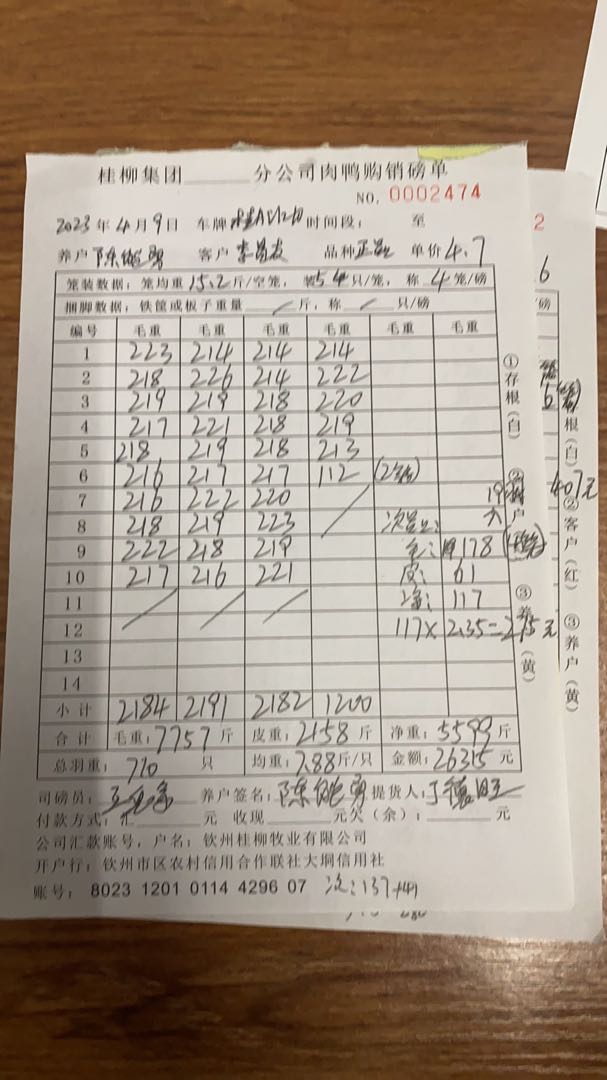 桂柳集团 分公司肉鸭购销磅单
NO. 0002474
2023年4月9日 车牌 时间段: 至
养户 陈 客户 李 品种 单价 4.7
笼装数据: 笼均重15.2斤/空笼, 装54只/笼, 称4笼/磅
捆脚数据: 铁筐或板子重量 / 斤, 称 / 只/磅
编号 毛重 毛重 毛重 毛重 毛重 毛重
1 223 214 214 214
2 218 226 214 222
3 219 219 218 220
4 217 221 218 219
5 218 219 218 213
6 216 217 217 112 (2笼)
7 216 222 220 /
8 218 219 223
9 222 218 219 毛: 178
10 217 216 221 皮: 61
11 / / / 净: 117
12 117×2.35=275元
13
14
小计 2184 2191 2182 1200
合计 毛重: 7757斤 皮重: 2158斤 净重: 5599斤
总羽重: 710 只 均重: 7.88斤/只 金额: 26315元
司磅员: 养户签名: 陈 提货人: 丁
付款方式: 汇 元 收现 元欠(余): 元
公司汇款账号, 户名: 钦州桂柳牧业有限公司
开户行: 钦州市区农村信用合作联社大垌信用社
账号: 8023 1201 0114 4296 07
①存根(白)
②客户(红)
③养户(黄)
2
6
407元
根(白)
②客户(红)
③养户(黄)